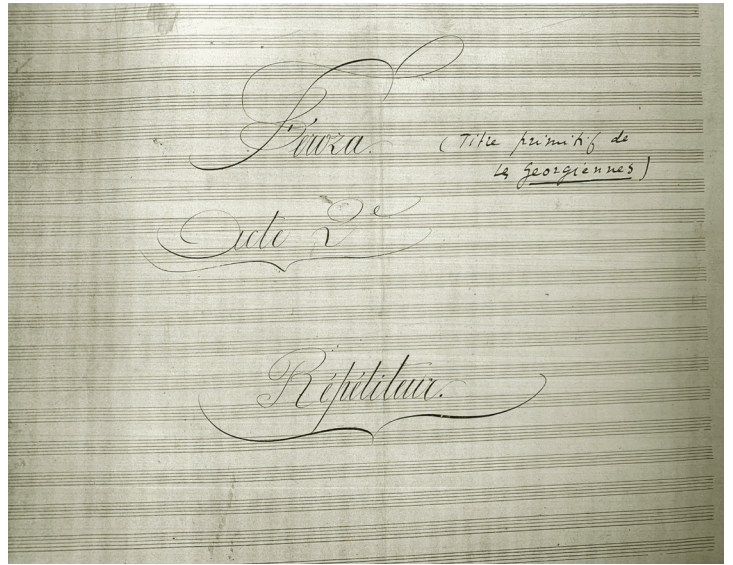 Féroza.
(Titre primitif de
Les Georgiennes)
Acte 2e
Répétiteur.